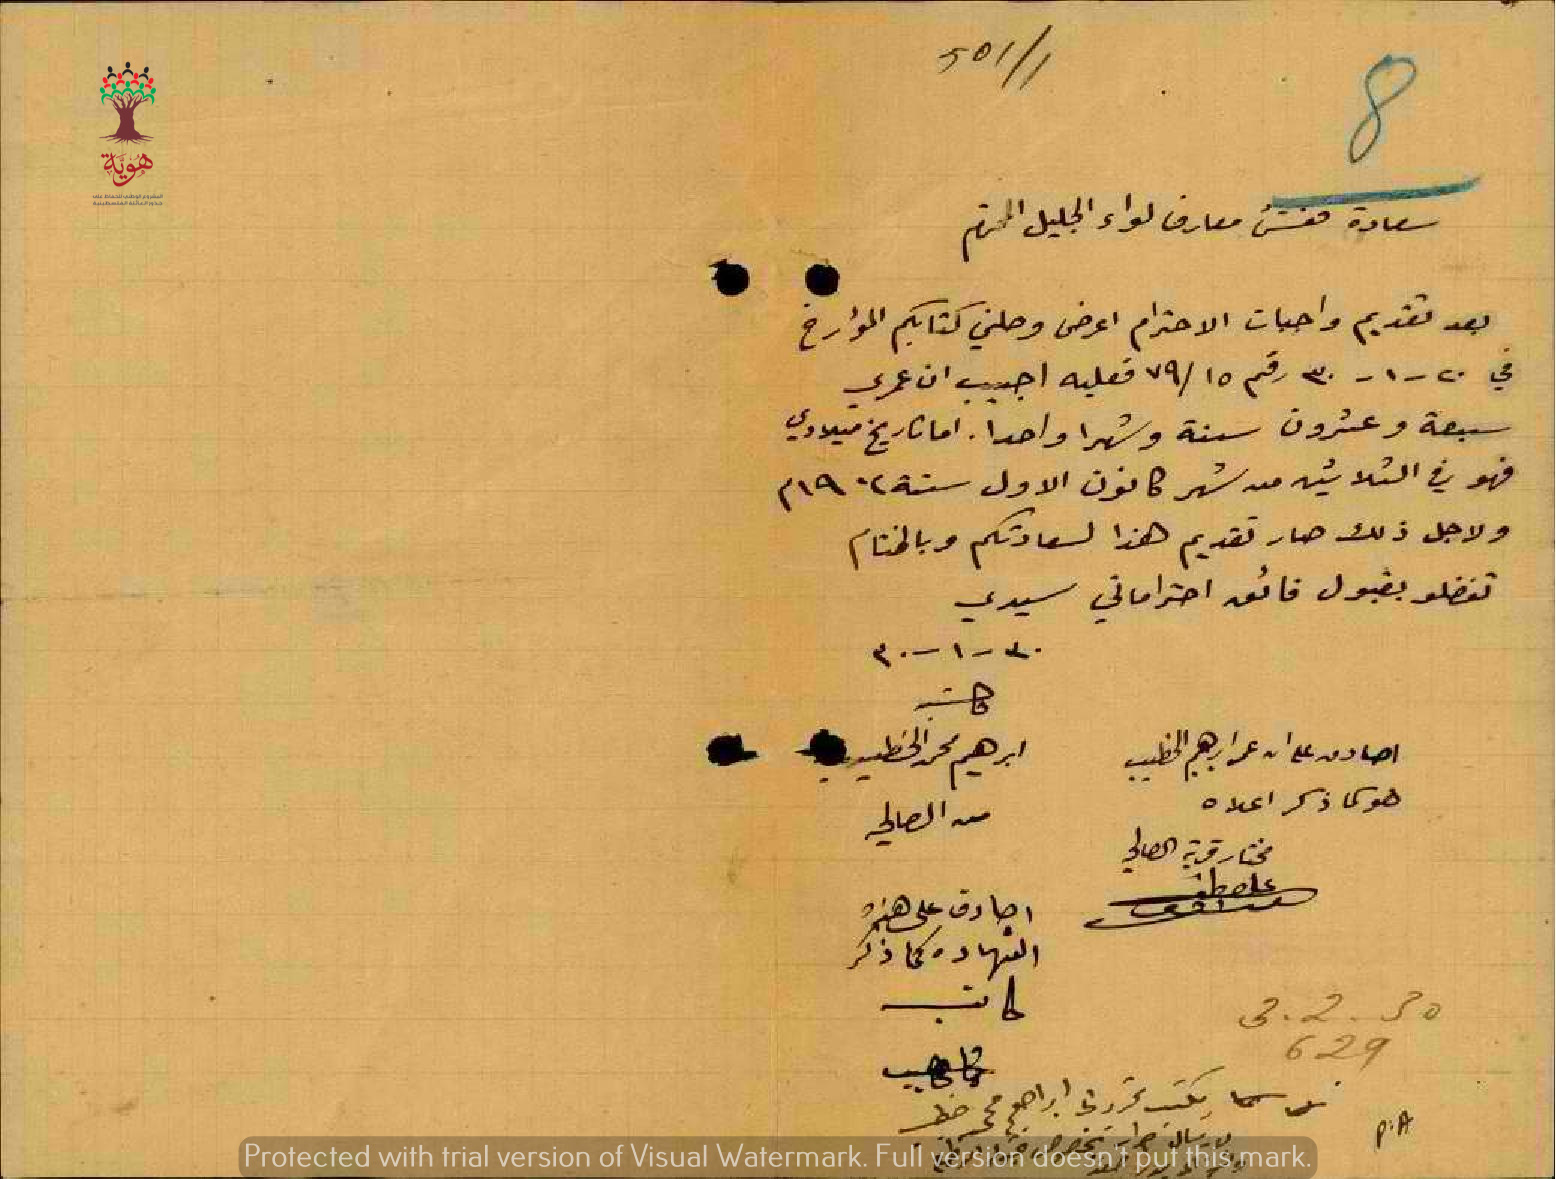 501/1
8
هوية
المشروع الوطني للحفاظ على
جذور العائلة الفلسطينية
سعادة مفتش معارف لواء الجليل المحترم
بعد تقديم واجبات الاحترام اعرض وصلني كتابكم المؤرخ
في ٢٠-١-٣٠ رقم ٧٩/١٥ فعليه اجيب ان عمري
سبعة وعشرون سنة وشهرا واحدا. اما تاريخ ميلادي
فهو في الثلاثين من شهر كانون الاول سنة ١٩٠٢م
ولاجل ذلك صار تقديم هذا لسعادتكم وبالختام
تفضلو بقبول فائق احتراماتي سيدي
٣٠-١-٣٠
كاتبه
ابرهيم محمد الخطيب
من الصالحيه
اصادق على ان عمر ابرهيم الخطيب
هو كما ذكر اعلاه
مختار قرية
اصادق على هذه
الشهاده كما ذكر
كاتبه
3.2.30
629
P.A
Protected with trial version of Visual Watermark. Full version doesn't put this mark.